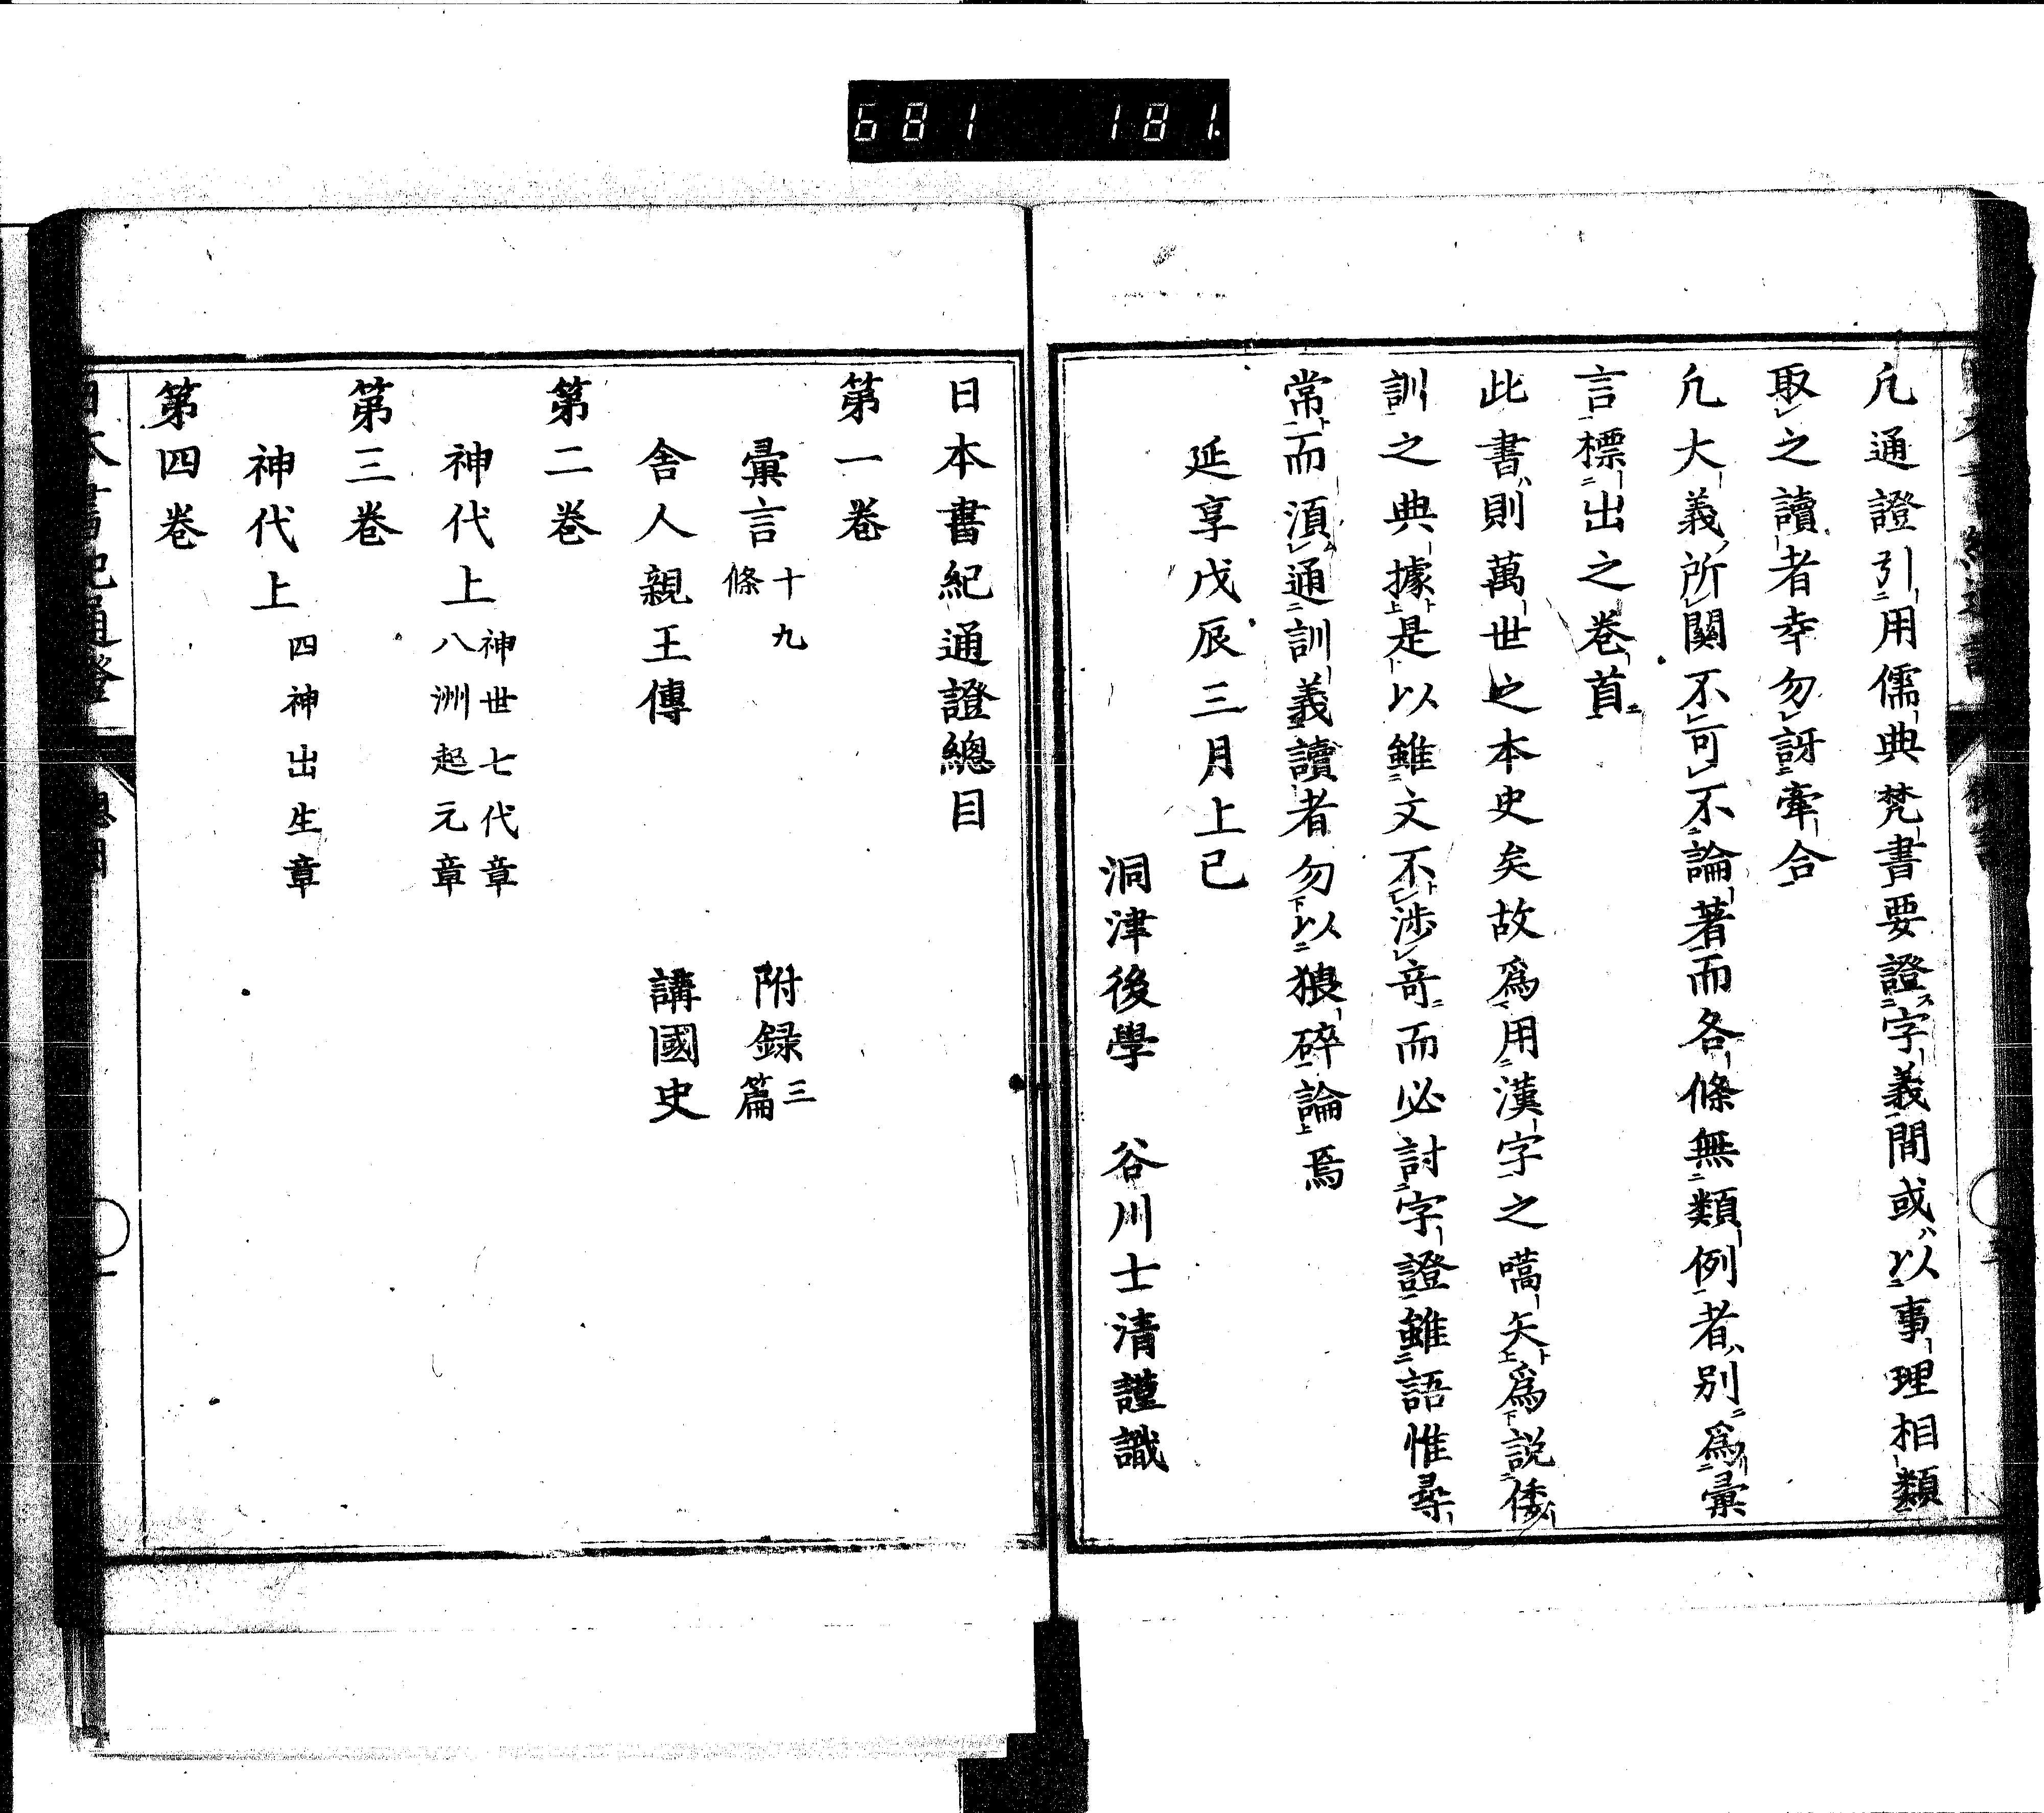 681 181.
凢通證引用儒典梵書要證字義間或以事理相類
取之讀者幸勿訝牽合
凢大義所關不可不論著而各條無類例者別爲彙
言標出之卷首
此書則萬世之本史矣故爲用漢字之嚆矢爲説倭
訓之典據是以雖文不渉竒而必討字證雖語惟尋
常而須通訓義讀者勿以猥碎論焉
延享戊辰三月上巳
洞津後學 谷川士清謹識
日本書紀通證總目
第一卷
彙言十九條 附録三篇
舎人親王傳 講國史
第二卷
神代上 神世七代章 八洲起元章
第三卷
神代上 四神出生章
第四卷
日本書紀通證 總目 一